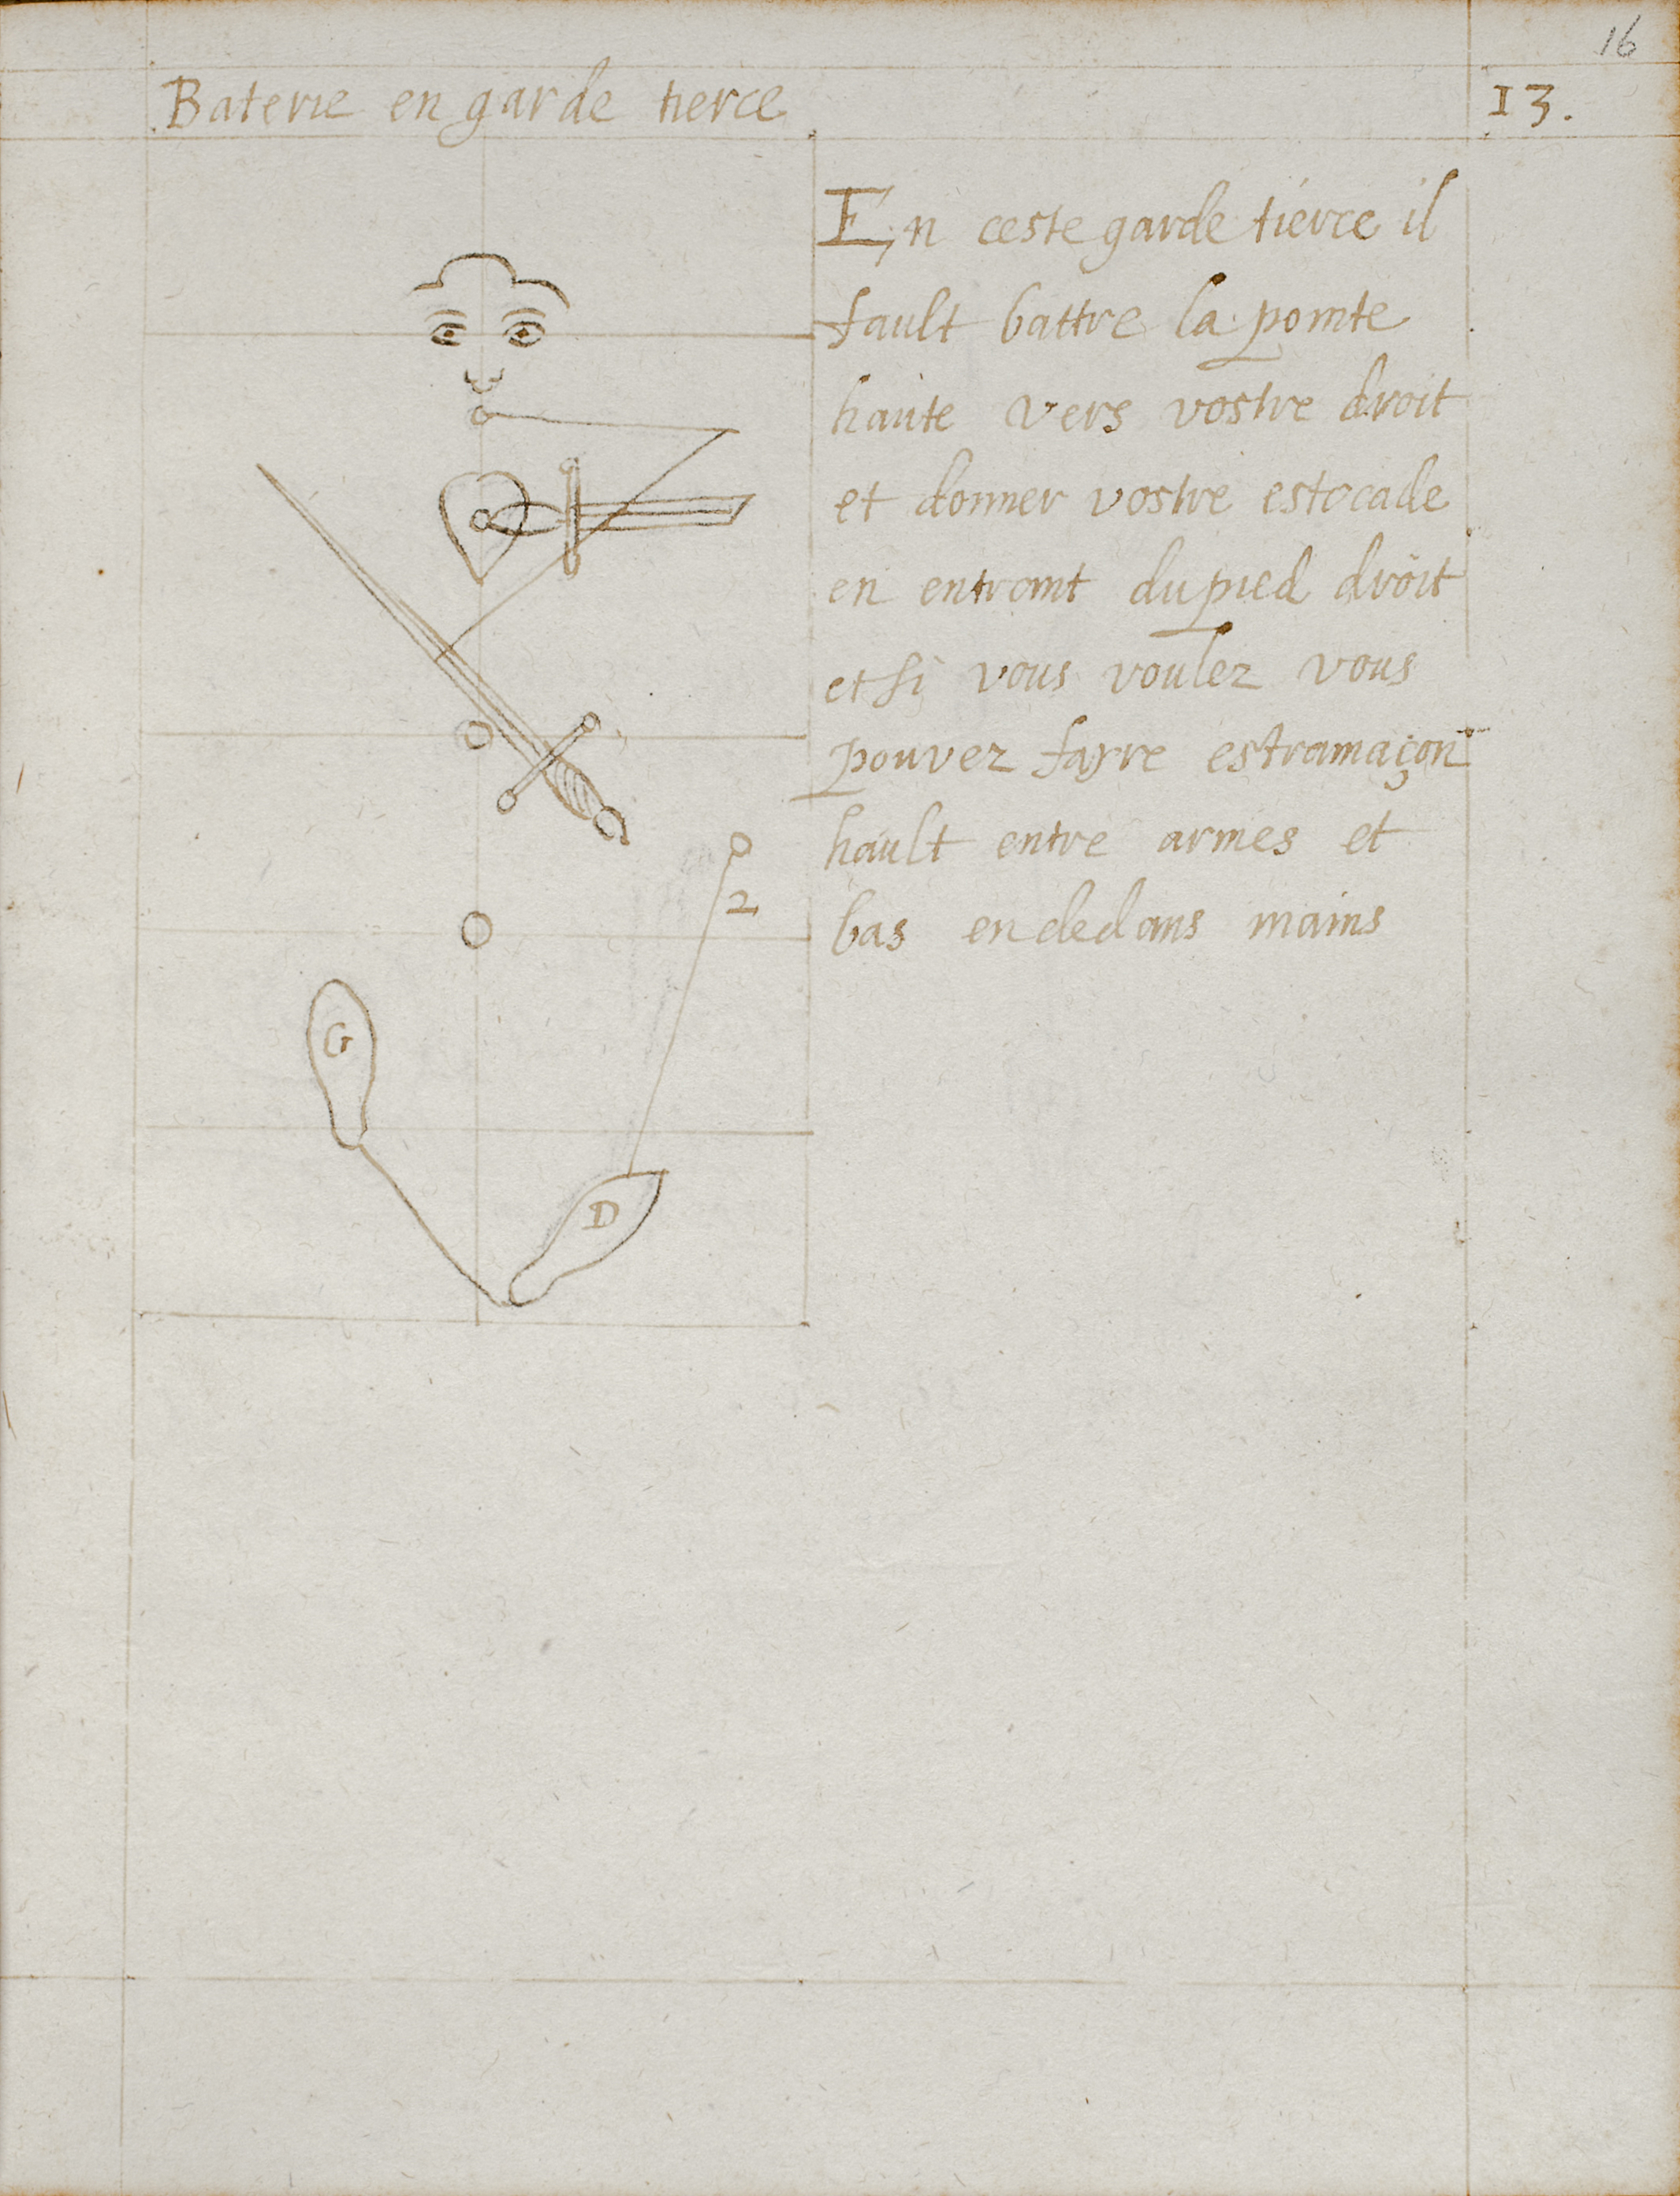 16
Baterie en garde tierce
13.
En ceste garde tierce il
fault battre la pointe
haute vers vostre droit
et donner vostre estocade
en entrant du pied droit
et si vous voulez vous
pouvez fayre estramaçon
hault entre armes et
bas en dedans mains
2
G
D